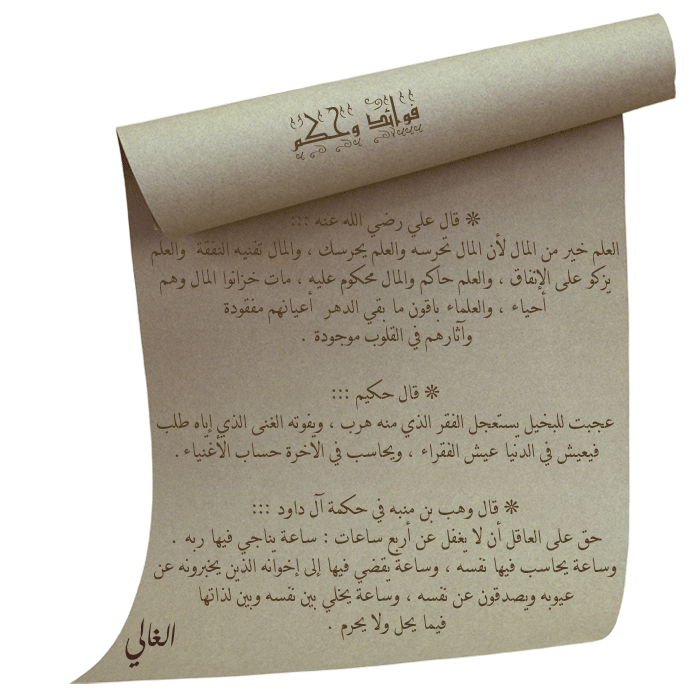 فوائد وحكم
❊ قال علي رضي الله عنه :::
العلم خير من المال لأن المال تحرسه والعلم يحرسك ، والمال تفنيه النفقة والعلم
يزكو على الإنفاق ، والعلم حاكم والمال محكوم عليه ، مات خزانوا المال وهم
أحياء ، والعلماء باقون ما بقي الدهر أعيانهم مفقودة
وآثارهم في القلوب موجودة .
❊ قال حكيم :::
عجبت للبخيل يستعجل الفقر الذي منه هرب ، ويفوته الغنى الذي إياه طلب
فيعيش في الدنيا عيش الفقراء ، ويحاسب في الآخرة حساب الأغنياء .
❊ قال وهب بن منبه في حكمة آل داود :::
حق على العاقل أن لا يغفل عن أربع ساعات : ساعة يناجي فيها ربه .
وساعة يحاسب فيها نفسه ، وساعة يقضي فيها إلى إخوانه الذين يخبرونه عن
عيوبه ويصدقون عن نفسه ، وساعة يخلي بين نفسه وبين لذاتها
فيما يحل ولا يحرم .
الغالي